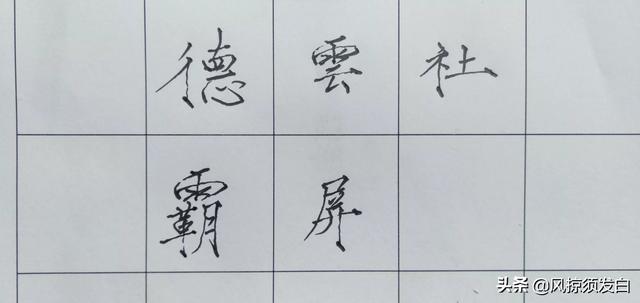 德雲社
霸屏
头条 @风掠须发白